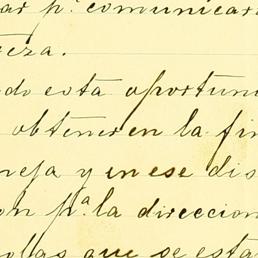 ar pª comunicar
teza.
do esta oportuni
obtener en la fin
neja y en ese dis
on pª la direccion
ollas que se esta